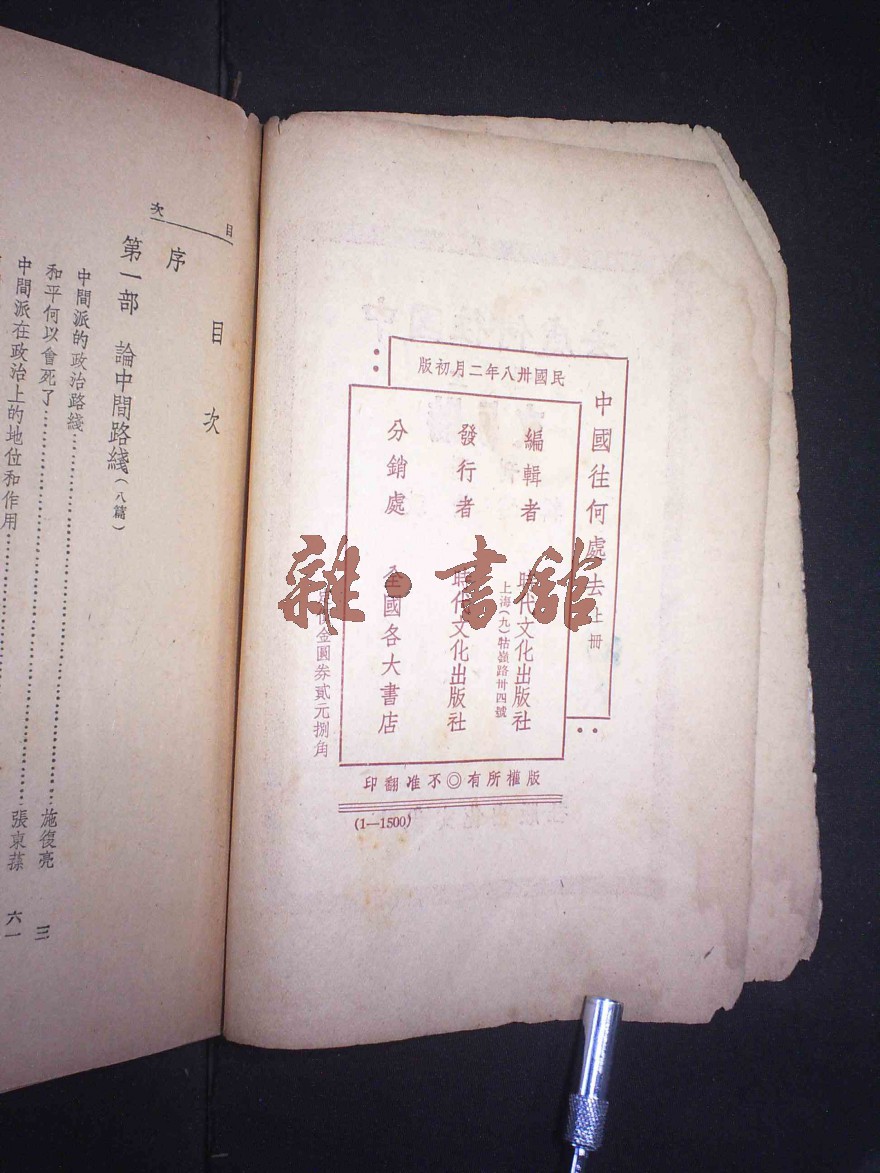 中國往何處去 上冊
民國卅八年二月初版
編輯者 時代文化出版社
上海(九)牯嶺路卅四號
發行者 時代文化出版社
分銷處 全國各大書店
金圓券貳元捌角
版權所有◎不准翻印
(1—1500)
雜·書舘
目次
目次
序
第一部 論中間路綫(八篇)
中間派的政治路綫 施復亮 三
和平何以會死了 張東蓀 六一
中間派在政治上的地位和作用